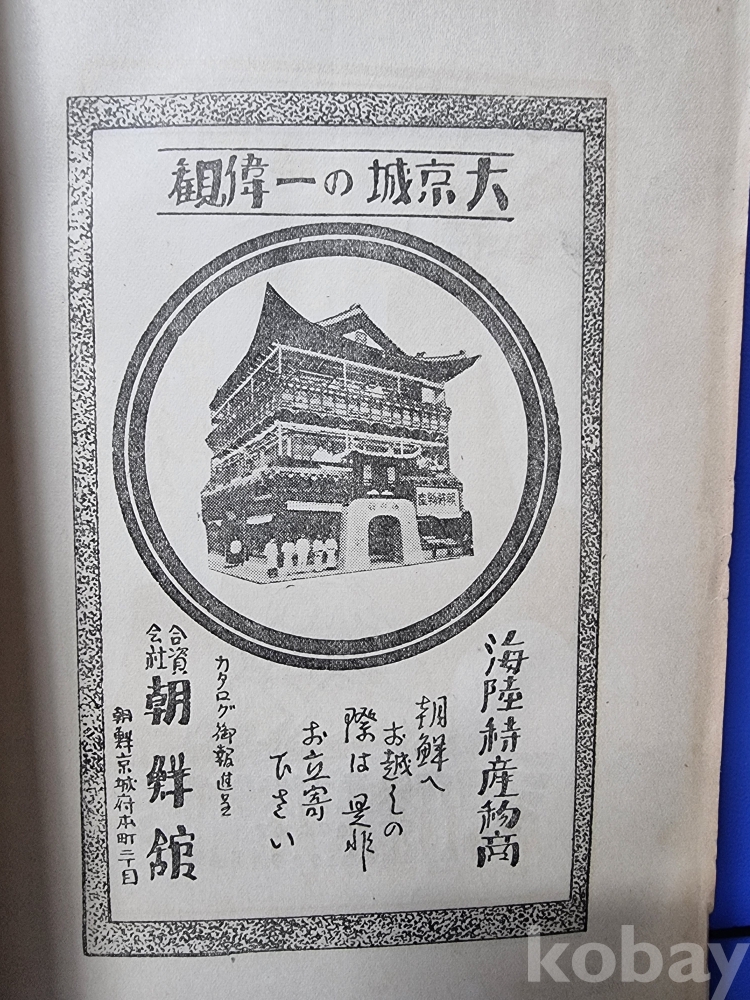 大京城の一偉観
海陸特産物商
朝鮮へ
お越しの
際は是非
お立寄
下さい
カタログ御報進呈
合資
会社
朝鮮館
朝鮮京城府本町二丁目
kobay